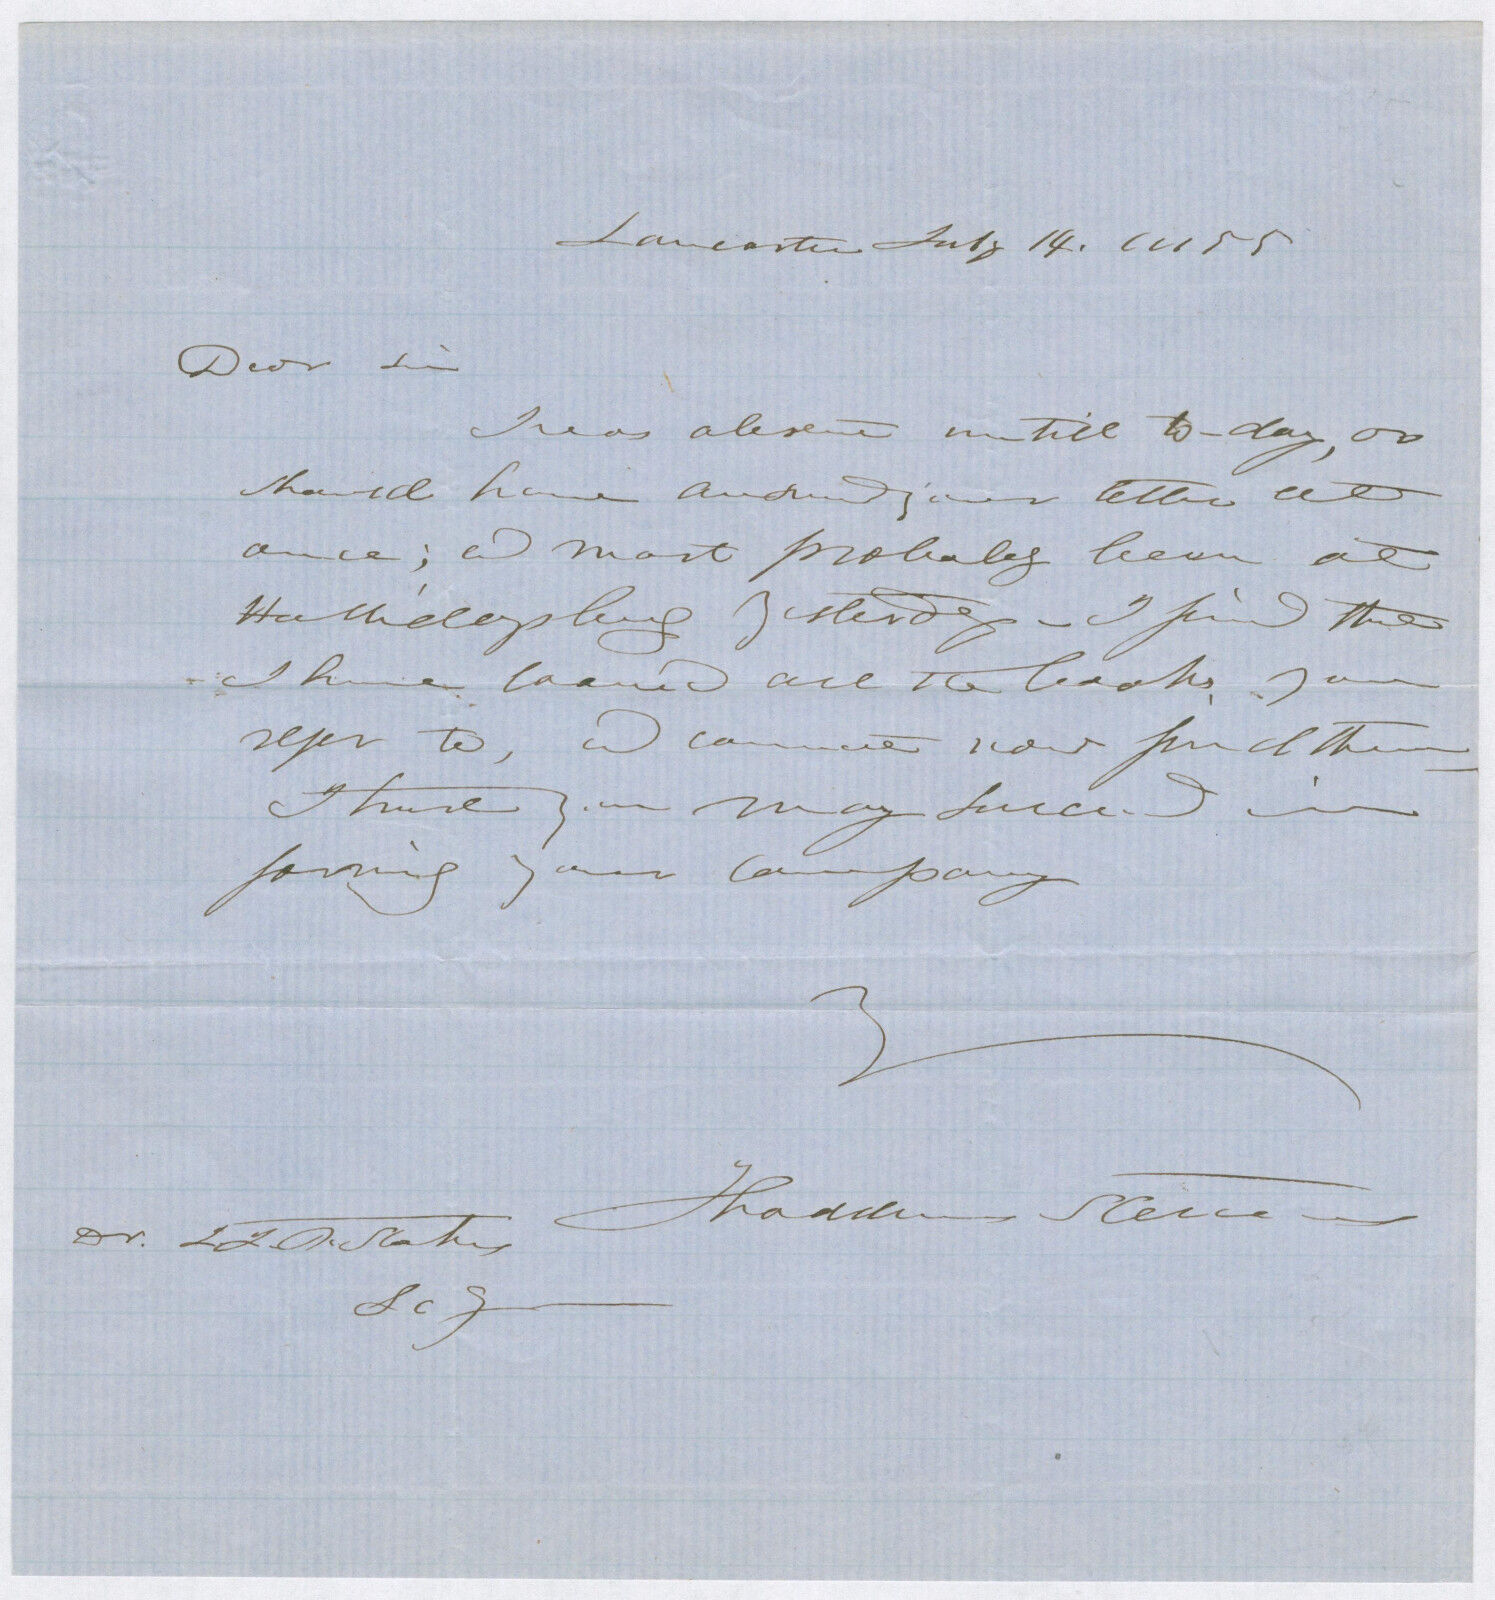 Lancaster July 14. 1855
Dear Sir
I was absent untill to-day, or
should have answered your letter at
once; and most probably been at
Hollidaysburg yesterday - I find that
I have loaned all the books you
refer to, and cannot now find them -
I trust you may succeed in
forming your company
Thaddeus Stevens
Dr.